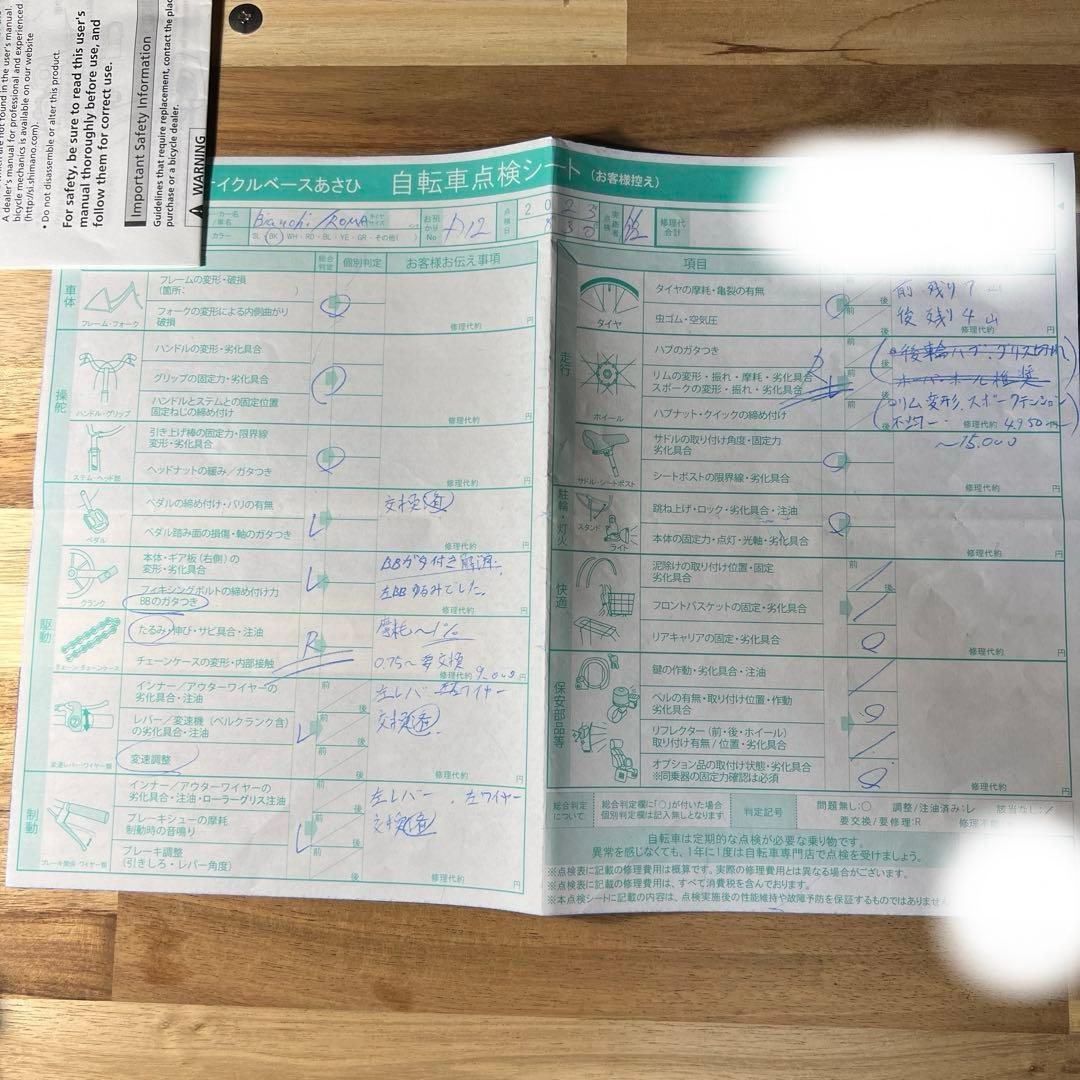 which are not found in the user's manual.
dealer's manual for professional and experienced
bicycle mechanics is available on our website
(http://si.shimano.com).
• Do not disassemble or alter this product.
For safety, be sure to read this user's
manual thoroughly before use, and
follow them for correct use.
Important Safety Information
Guidelines that require replacement, contact the place of
purchase or a bicycle dealer.
WARNING
イクルベースあさひ 自転車点検シート (お客様控え)
Bianchi/ROMA
カラー SL BK WH・RD・BL・YE・GR・その他( )
お預かりNo
点検日 2023
830
点検実施者
修理代合計
総合判定 個別判定 お客様お伝え事項
車体
フレーム・フォーク
フレームの変形・破損
(箇所: )
フォークの変形による内側曲がり
破損
修理代約 円
操舵
ハンドル・グリップ
ハンドルの変形・劣化具合
グリップの固定力・劣化具合
ハンドルとステムとの固定位置
固定ねじの締め付け
修理代約 円
ステム・ヘッド部
引き上げ棒の固定力・限界線
変形・劣化具合
ヘッドナットの緩み/ガタつき
修理代約 円
駆動
ペダル
ペダルの締め付け・バリの有無
ペダル踏み面の損傷・軸のガタつき
L
交換
修理代約 円
クランク
本体・ギア板(右側)の
変形・劣化具合
フィキシングボルトの締め付け力
BBのガタつき
L
BBガタ付き解消
左BBゆるみでした。
修理代約 円
チェーン・チェーンケース
たるみ・伸び・サビ具合・注油
チェーンケースの変形・内部接触
R
摩耗〜1%
0.75〜要交換
修理代約 9,000 円
変速レバー・ワイヤー類
インナー/アウターワイヤーの
劣化具合・注油
レバー/変速機(ベルクランク含)
の劣化具合・注油
変速調整
前 後
L
左レバー
ワイヤー
交換
修理代約 円
制動
ブレーキ関係 ワイヤー類
インナー/アウターワイヤーの
劣化具合・注油・ローラーグリス注油
ブレーキシューの摩耗
制動時の音鳴り
ブレーキ調整
(引きしろ・レバー角度)
前 後
L
左レバー、左ワイヤー
交換
修理代約 円
項目
走行
タイヤ
タイヤの摩耗・亀裂の有無
虫ゴム・空気圧
前 後
前 残り7山
後 残り4山
修理代約 円
ホイール
ハブのガタつき
リムの変形・振れ・摩耗・劣化具合
スポークの変形・振れ・劣化具合
ハブナット・クイックの締め付け
R
後輪ハブ グリス切れ
オーバーホール推奨
リム変形、スポークテンション
不均一
修理代約 4,950 円
〜15,000
サドル・シートポスト
サドルの取り付け角度・固定力
劣化具合
シートポストの限界線・劣化具合
修理代約 円
駐輪・灯火
スタンド
ライト
跳ね上げ・ロック・劣化具合・注油
本体の固定力・点灯・光軸・劣化具合
修理代約 円
快適
泥除けの取り付け位置・固定
劣化具合
フロントバスケットの固定・劣化具合
リアキャリアの固定・劣化具合
修理代約 円
保安部品等
鍵の作動・劣化具合・注油
ベルの有無・取り付け位置・作動
劣化具合
リフレクター(前・後・ホイール)
取り付け有無/位置・劣化具合
オプション品の取付け状態・劣化具合
※同乗器の固定力確認は必須
修理代約 円
総合判定について
総合判定欄に「○」が付いた場合
個別判定欄は記入無しとなります。
判定記号
問題無し:○ 調整/注油済み:L 該当なし:/
要交換/要修理:R
自転車は定期的な点検が必要な乗り物です。
異常を感じなくても、1年に1度は自転車専門店で点検を受けましょう。
※点検表に記載の修理費用は概算です。実際の修理費用とは異なる場合がございます。
※点検表に記載の修理費用は、すべて消費税を含んでおります。
※本点検シートに記載の内容は、点検実施後の性能維持や故障予防を保証するものではありません